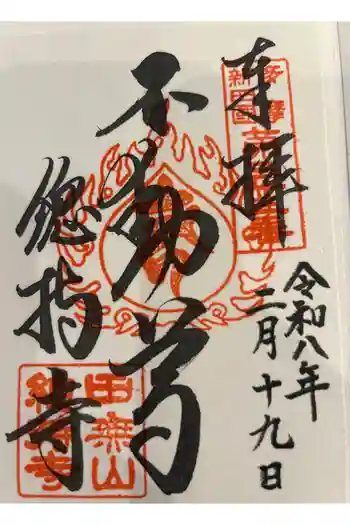 奉拝
令和八年
二月十九日
不動尊
總持寺
田無山
總持寺